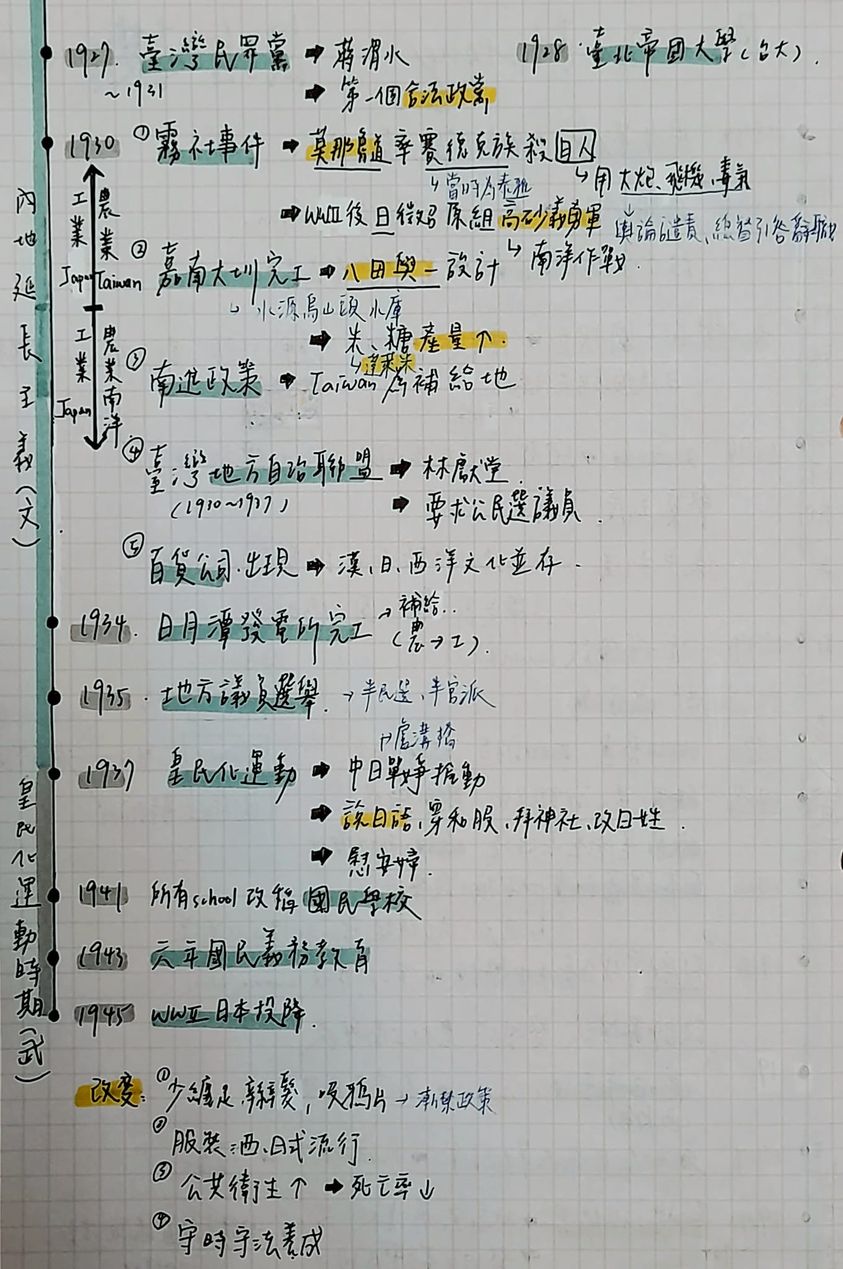 1927. 臺灣民眾黨 ➡ 蔣渭水
1928. 臺北帝國大學(台大).
~1931 ➡ 第一個合法政黨
1930 ①霧社事件 ➡ 莫那魯道率賽德克族殺日人
↳當時為泰雅
↳用大炮、飛機、毒氣
↳輿論譴責、總督引咎辭職
➡ WWII後日徵召原組高砂義勇軍
↳南洋作戰.
②嘉南大圳完工 ➡ 八田與一設計
↳水源烏山頭水庫
➡ 米、糖產量↑.
↳蓬萊米
③南進政策 ➡ Taiwan為補給地
④臺灣地方自治聯盟 ➡ 林獻堂.
(1930~1937) ➡ 要求公民選議員.
⑤百貨公司.出現 ➡ 漢、日、西洋文化並存.
工業 Japan
農業 Taiwan
工業 Japan
農業南洋
內地延長主義(文)
1934. 日月潭發電所完工
→補給..
(農→工).
1935. 地方議員選舉. →半民選、半官派
1937 皇民化運動 ➡ 中日戰爭推動
↱盧溝橋
➡ 說日語、穿和服、拜神社、改日姓.
➡ 慰安婦.
1941 所有school改稱國民學校
1943 六年國民義務教育
1945 WWII日本投降.
皇民化運動時期(武)
改變:①少纏足、辮髮,吸鴉片→漸禁政策
②服裝:西、日式流行.
③公共衛生↑ ➡ 死亡率↓
④守時守法養成